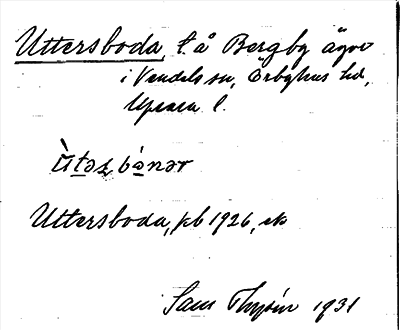 Uttersboda, t. å Bergby ägor
i Vendels sn, Örbyhus hd,
Upsala l.
Uttersboda, jb 1926, ek
Sam Thyrén 1931